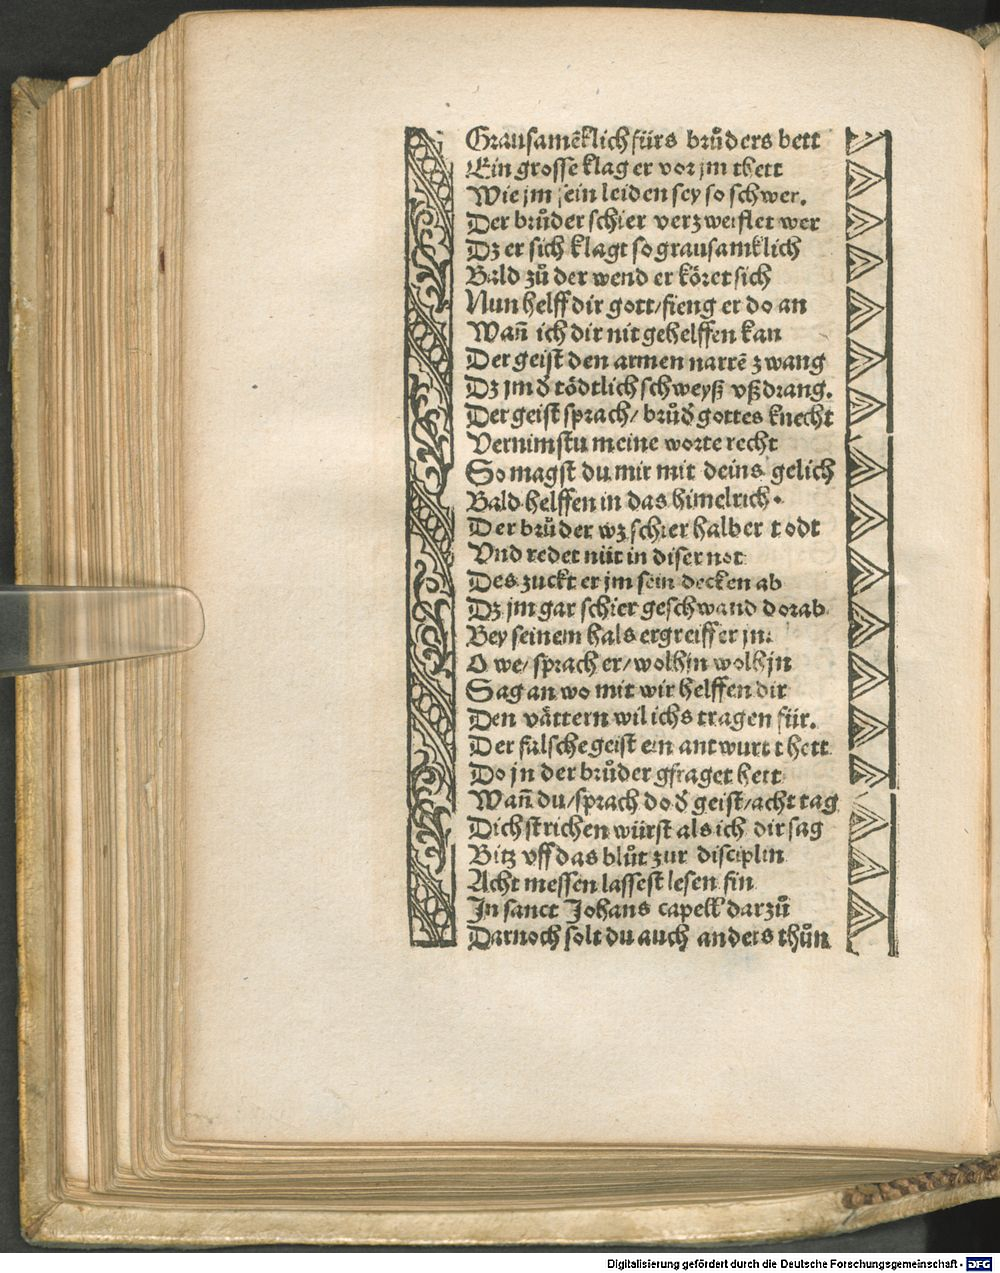 Grausamēklich fürs brůders bett
Ein grosse klag er vor jm thett
Wie jm sein leiden sey so schwer.
Der brůder schier verzweiflet wer
Dz er sich klagt so grausamklich
Bald zů der wend er köret sich
Nun helff dir gott/fieng er do an
Wañ ich dir nit gehelffen kan
Der geist den armen narrē zwang
Dz jm d̕ tödtlich schweyß vß drang.
Der geist sprach/ brůd̕ gottes knecht
Vernimstu meine worte recht
So magst du mir mit deins gelich
Bald helffen in das himelrich.
Der brůder wz schier halber todt
Vnd redet nüt in diser not
Des zuckt er jm sein decken ab
Dz jm gar schier geschwand dorab
Bey seinem hals ergreiff er jn.
O we/ sprach er/ wolhin wolhin
Sag an wo mit wir helffen dir
Den vättern wil ichs tragen für.
Der falsche geist ein antwurt thett
Do jn der brůder gfraget hett
Wañ du/sprach do d̕ geist/acht tag
Dich strichen würst als ich dir sag
Bitz vff das blůt zur disciplin
Acht messen lassest lesen fin
In sanct Johans capell darzů
Darnoch solt du auch anders thůn
Digitalisierung gefördert durch die Deutsche Forschungsgemeinschaft - DFG